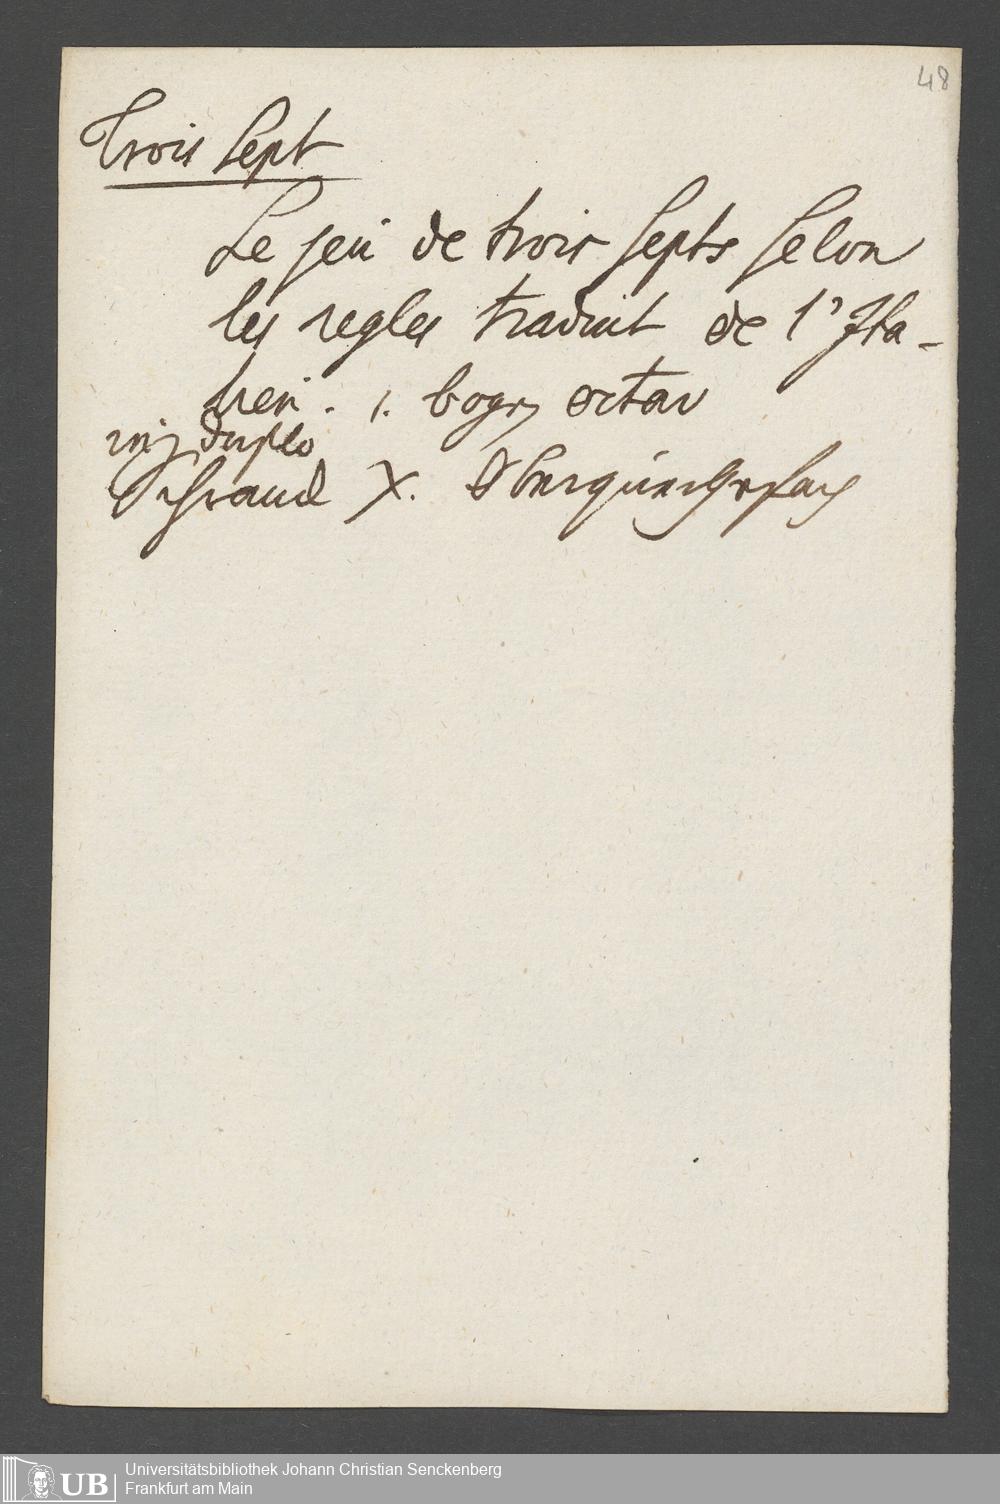 48
Trois Sept
Le jeu de trois Septs Selon
les regles traduit de l'Ita-
lien. 1. bogen octav
in duplo
Schrand X.
Universitätsbibliothek Johann Christian Senckenberg
UB Frankfurt am Main